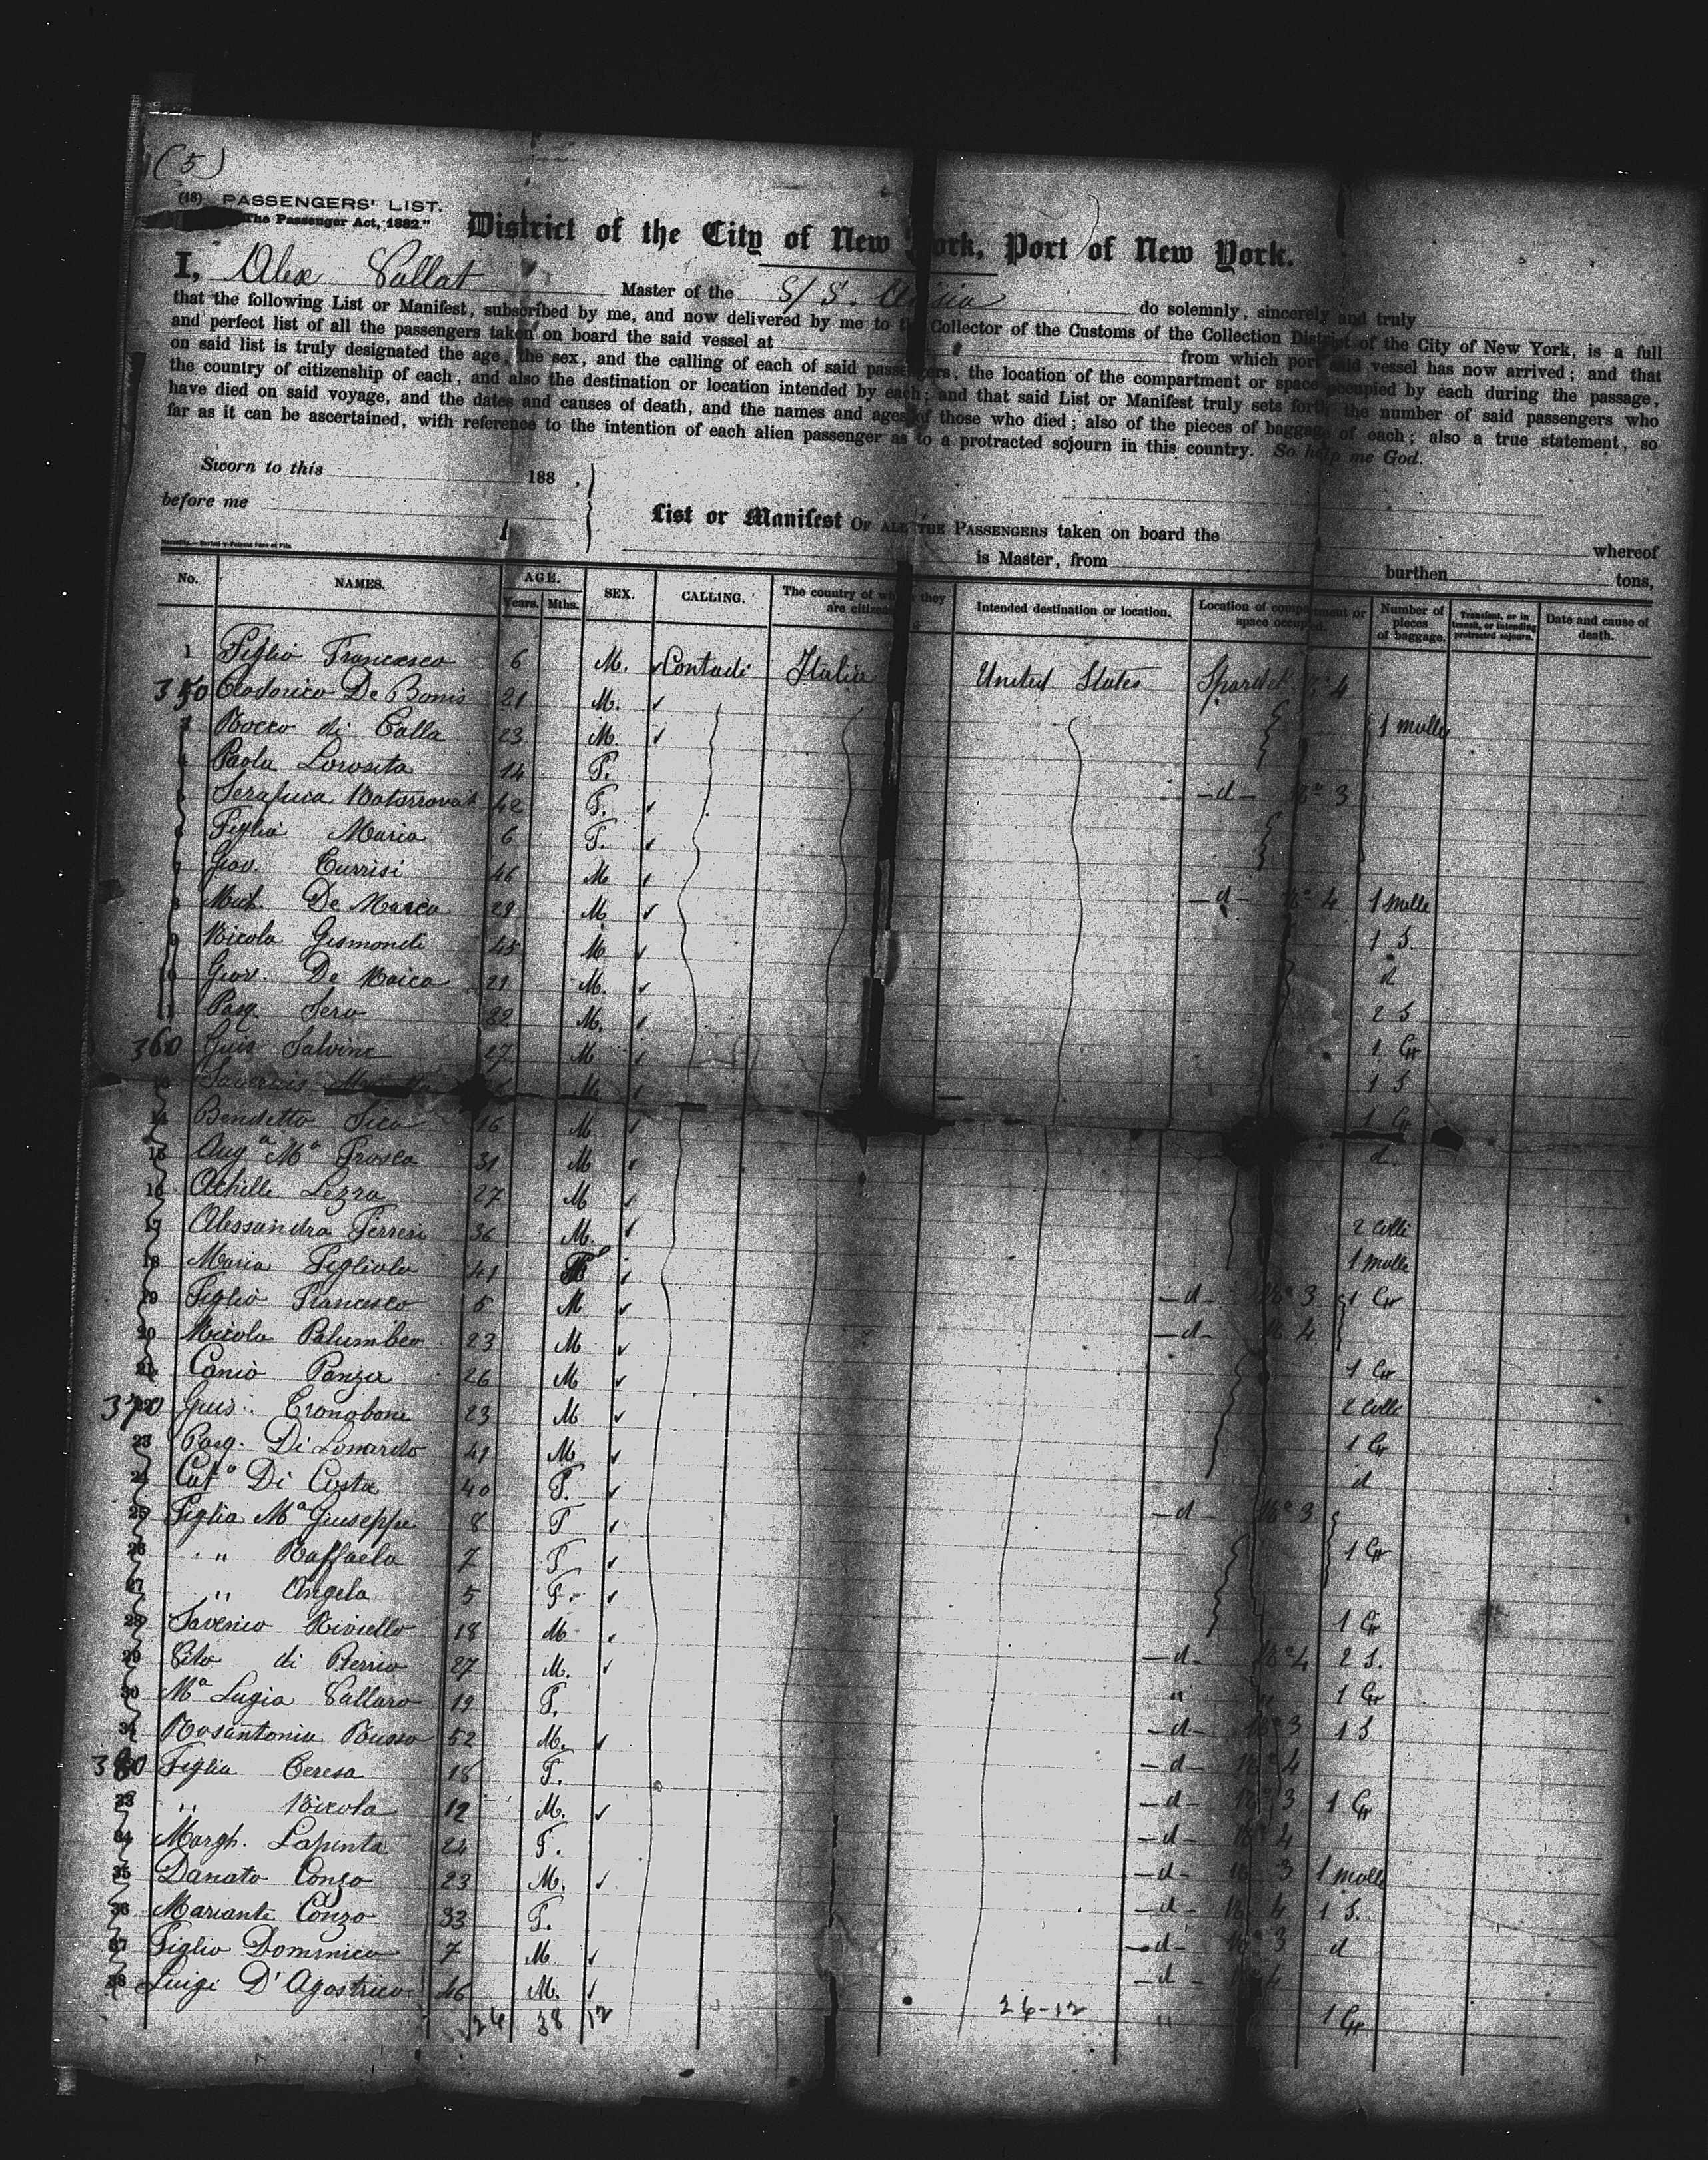 (5)
(18) PASSENGERS' LIST.
"The Passenger Act, 1882"
District of the City of New York, Port of New York.
I, Alex Vallat Master of the S/S. do solemnly, sincerely and truly
that the following List or Manifest, subscribed by me, and now delivered by me to the Collector of the Customs of the Collection District of the City of New York, is a full
and perfect list of all the passengers taken on board the said vessel at from which port said vessel has now arrived; and that
on said list is truly designated the age, the sex, and the calling of each of said passengers, the location of the compartment or space occupied by each during the passage,
the country of citizenship of each, and also the destination or location intended by each; and that said List or Manifest truly sets forth the number of said passengers who
have died on said voyage, and the dates and causes of death, and the names and ages of those who died; also of the pieces of baggage of each; also a true statement, so
far as it can be ascertained, with reference to the intention of each alien passenger as to a protracted sojourn in this country. So help me God.
Sworn to this 188 .
before me
List or Manifest OF ALL THE PASSENGERS taken on board the whereof
is Master, from burthen tons.
No. NAMES. AGE. Years. Mths. SEX. CALLING. The country of which they are citizens Intended destination or location. Location of compartment or space occupied. Number of pieces of baggage. Transient, or in transit, or intending protracted sojourn. Date and cause of death.
1 Figlio Francesco 6 M. Contadi Italia United States 4
350 De Bonis 21 M.
3 Rocco di Calla 23 M. 1 malle
4 Paola 14 F.
5 42 F. -d- 3
6 Figlia Maria 6 F.
7 Giov. Currisi 46 M
8 Mich. De Marco 29 M -d- 4 1 malle
9 Nicola Gismondi 45 M. 1 S.
10 Giov. De 21 M. d
11 Pasq. Sero 32 M. 2 S
360 Guis Salvine 27 M 1 Gr
M. 1 S
14 Bendetto Sica 16 M 1 Gr
15 Ang.a M.a Frosca 31 M d
16 Achille Lezza 27 M
17 Alessandra Ferreri 36 M. 2 colli
18 Maria Figliola 41 F 1 malle
19 Figlio Francesco 6 M -d- 3 1 Gr
20 Nicola Palumbeo 23 M -d- 4
21 Canio Panza 26 M 1 Gr
370 Guis. 23 M 2 colli
23 Pasq. Di Lonardo 41 M 1 Gr
24 Cat.a Di Costa 40 F. d
25 Figlia M.a Giuseppe 8 F -d- 3
26 " Raffaela 7 F 1 Gr
27 " Angela 5 F.
28 Saverio Riviello 18 M 1 Gr
29 Vito di Pierrio 27 M. -d- 4 2 S.
30 M.a Lugia Vallaro 19 F. " " 1 Gr
31 Rosantonia Russo 52 M. -d- 3 1 S
380 Figlia Teresa 18 F. -d- 4
33 " Nicola 12 M. -d- 3 1 Gr
34 Margh. Lapinta 24 F. -d- 4
35 Danato Conzo 23 M. -d- 3 1 malle
36 Mariante Conzo 33 F. -d- 4 1 S.
37 Figlio Dominico 7 M -d- 3 d
38 Luigi D'Agostrico 46 M. -d- 4
26 38 12 26-12 " 1 Gr